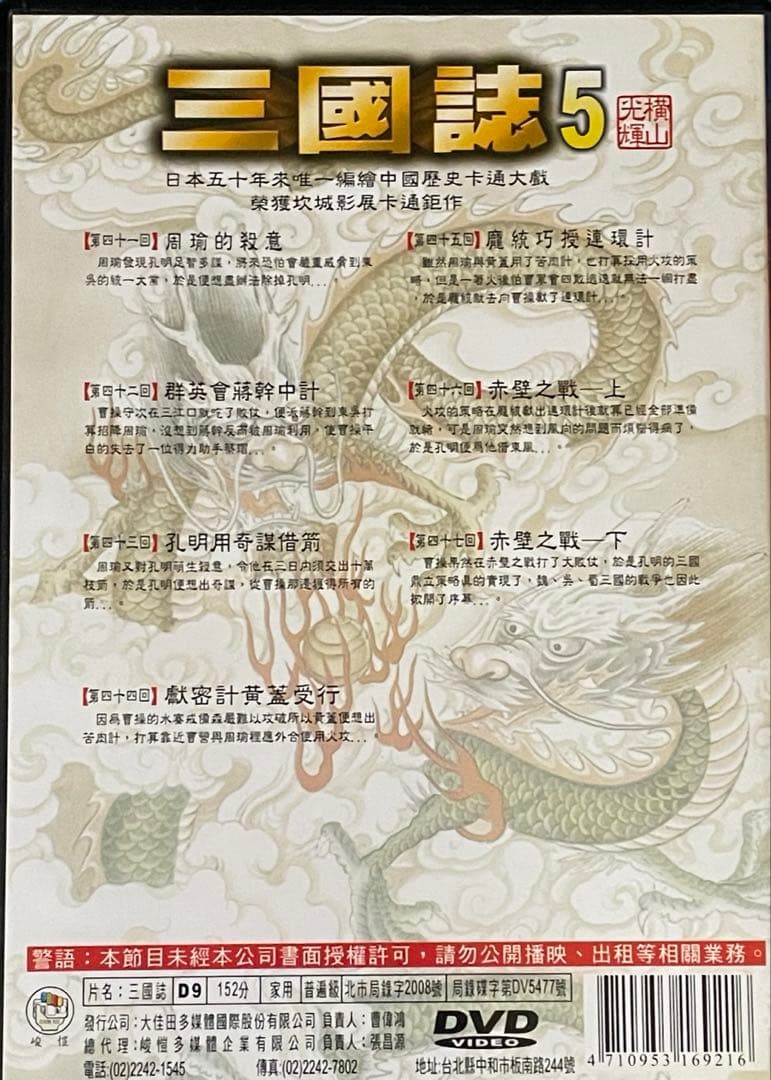 三國誌5
橫山光輝
日本五十年來唯一編繪中國歷史卡通大戲
榮獲坎城影展卡通鉅作
【第四十一回】周瑜的殺意
周瑜發現孔明足智多謀，將來恐怕會嚴重威脅到東
吳的統一大業，於是便想盡辦法除掉孔明...。
【第四十二回】群英會蔣幹中計
曹操守次在三江口就吃了敗仗，便派蔣幹到東吳打
算招降周瑜，沒想到蔣幹反而被周瑜利用，使曹操平
白的失去了一位得力助手蔡瑁...。
【第四十三回】孔明用奇謀借箭
周瑜又對孔明萌生殺意，令他在三日內須交出十萬
枝箭，於是孔明便想出奇謀，從曹操那邊獲得所有的
箭...。
【第四十四回】獻密計黃蓋受行
因為曹操的水寨戒備森嚴難以攻破所以黃蓋便想出
苦肉計，打算靠近曹營與周瑜裡應外合使用火攻...。
【第四十五回】龐統巧授連環計
雖然周瑜與黃蓋用了苦肉計，也打算採用火攻的策
略，但是一著火後怕曹軍會四散逃逸就無法一網打盡
，於是龐統就去向曹操獻了連環計...。
【第四十六回】赤壁之戰—上
火攻的策略在龐統獻出連環計後就算已經全部準備
就緒，可是周瑜突然想到風向的問題而煩惱得病了，
於是孔明便為他借東風...。
【第四十七回】赤壁之戰—下
曹操果然在赤壁之戰打了大敗仗，於是孔明的三國
鼎立策略真的實現了，魏、吳、蜀三國的戰爭也因此
掀開了序幕...。
警語：本節目未經本公司書面授權許可，請勿公開播映、出租等相關業務。
片名：三國誌 D9 152分 家用 普遍級 北市局錄字2008號 局錄碟字第DV5477號
峻愷
發行公司：大佳田多媒體國際股份有限公司 負責人：曹偉鴻
總代理：峻愷多媒體企業有限公司 負責人：張昌源
電話:(02)2242-1545 傳真:(02)2242-7802 地址:台北縣中和市板南路244號
DVD
VIDEO
4 710953 169216